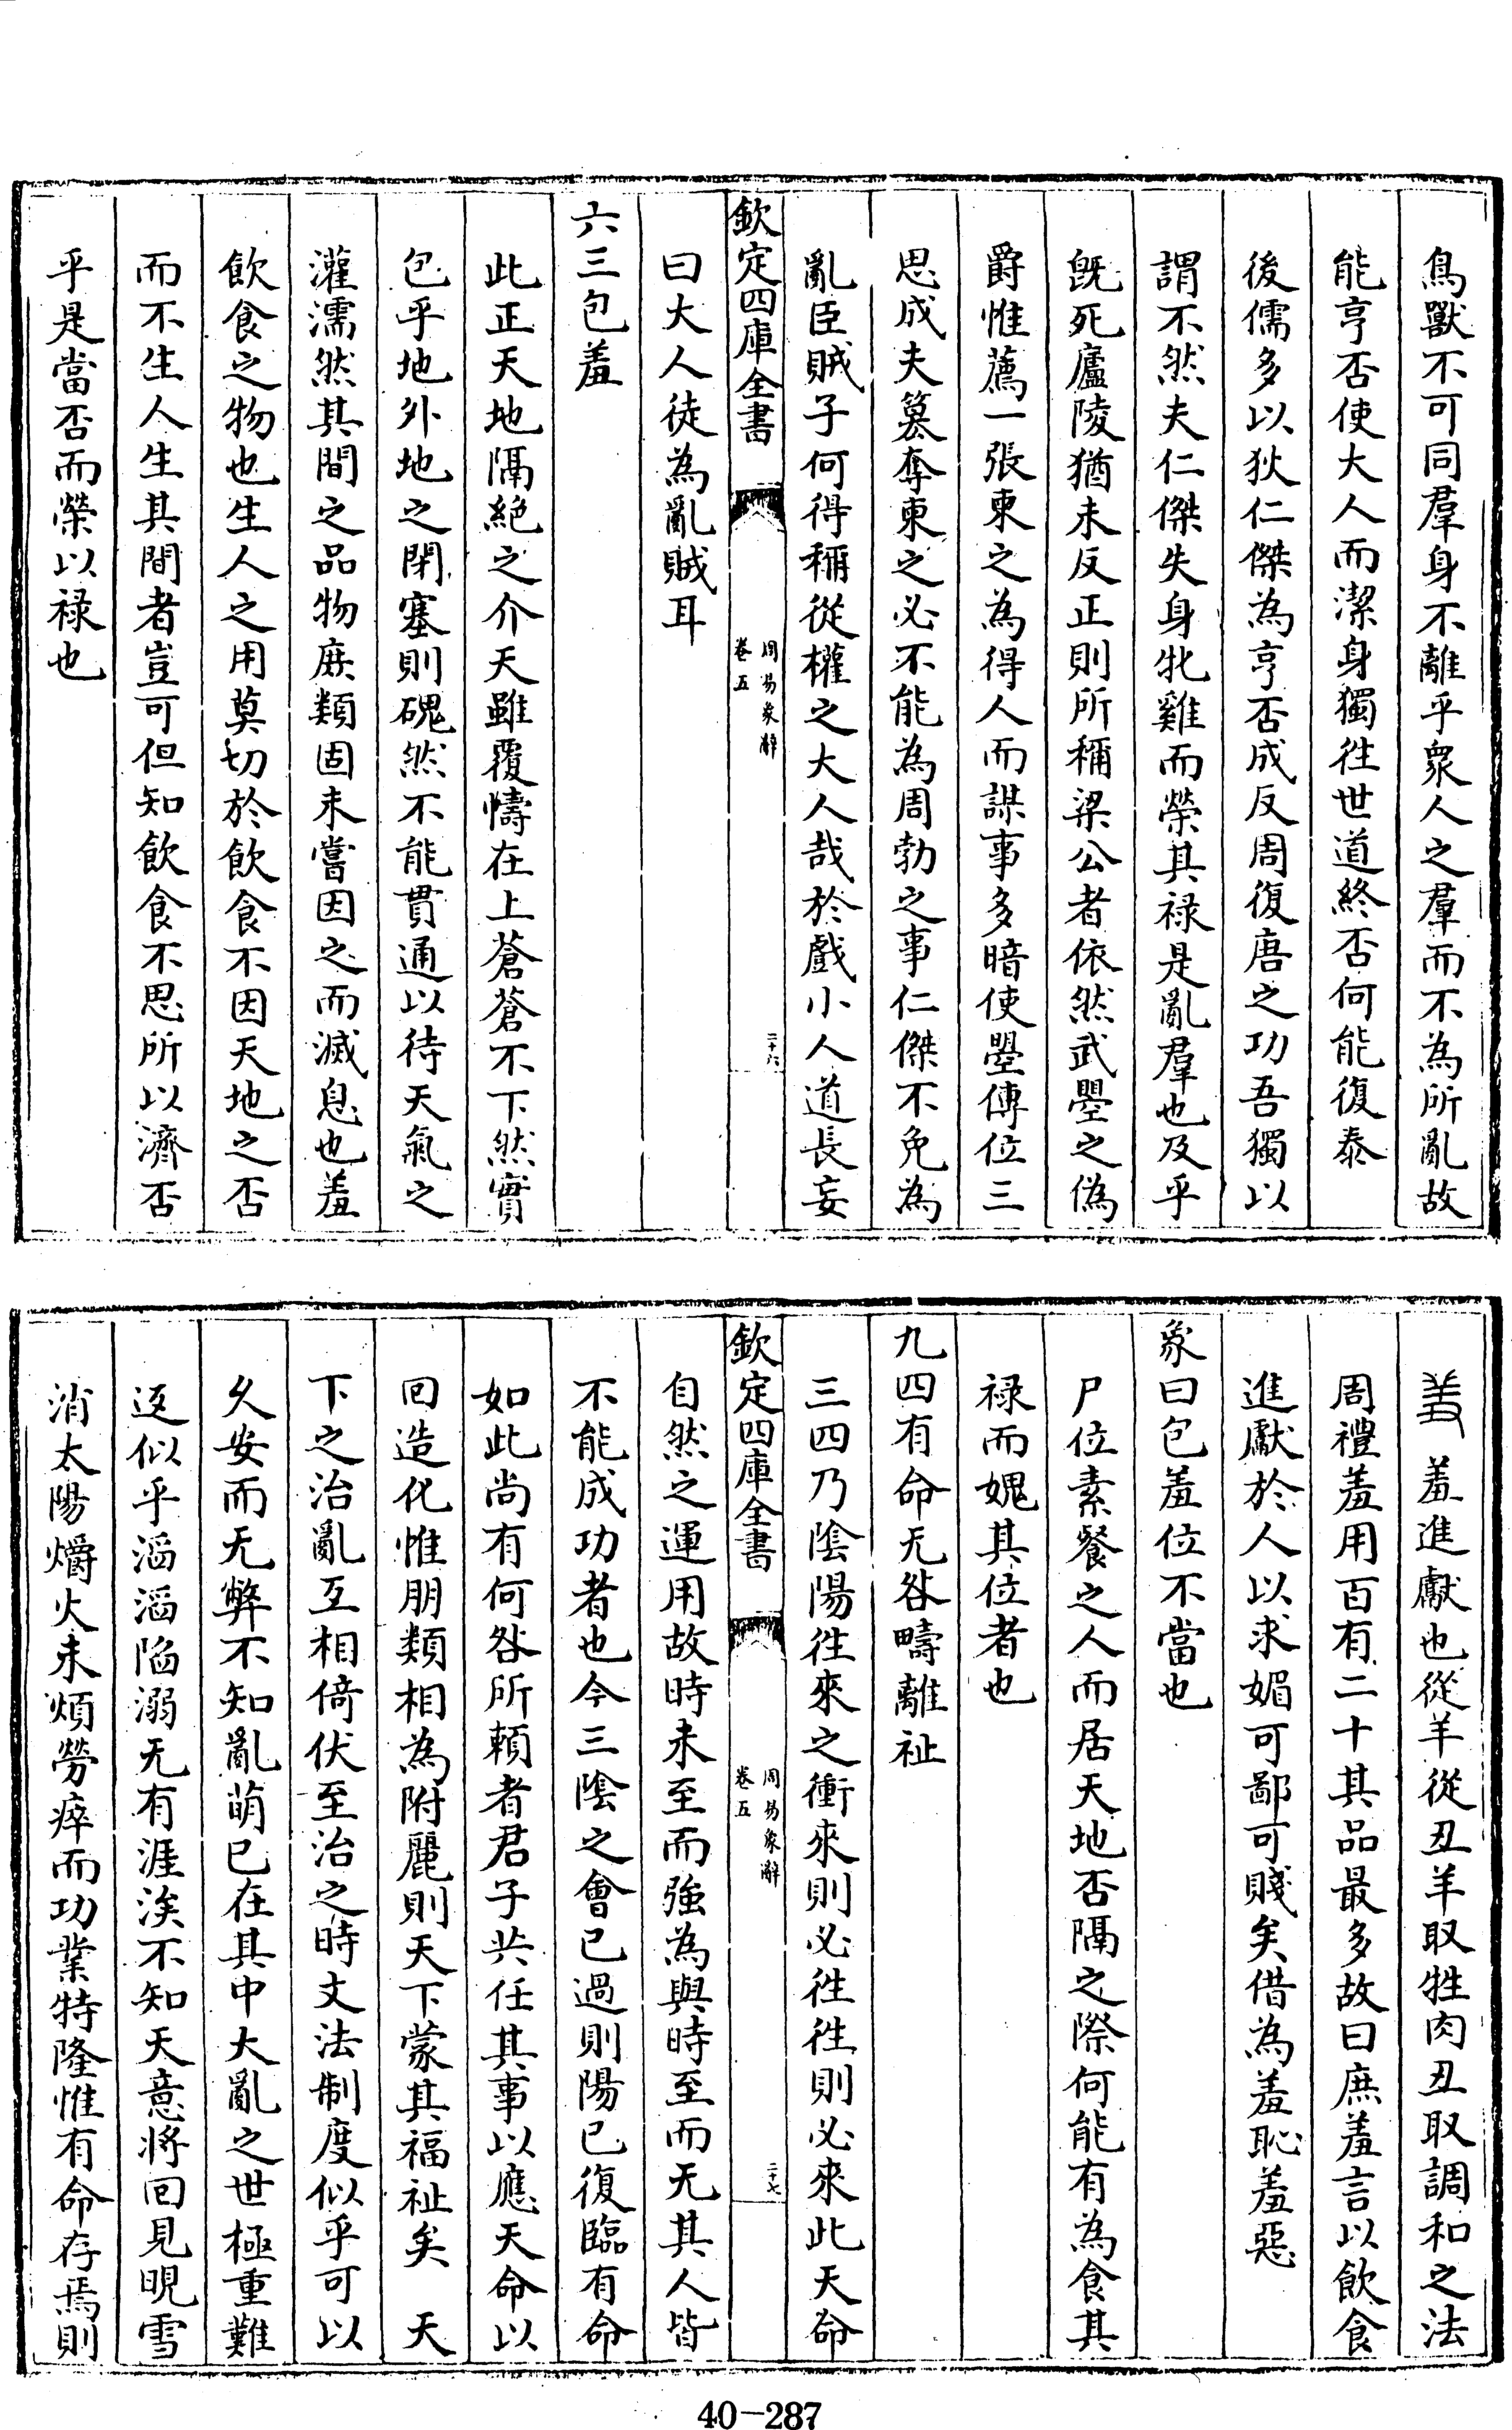 鳥獸不可同羣身不離乎衆人之羣而不為所亂故
能亨否使大人而潔身獨往世道終否何能復泰
後儒多以狄仁傑為亨否成反周復唐之功吾獨以
謂不然夫仁傑失身牝雞而榮其禄是亂羣也及乎
旣死廬陵猶未反正則所稱梁公者依然武曌之偽
爵惟薦一張柬之為得人而謀事多暗使曌傳位三
思成夫篡奪柬之必不能為周勃之事仁傑不免為
亂臣賊子何得稱從權之大人哉於戲小人道長妄
欽定四庫全書
周易象辭
卷五
二十六
曰大人徒為亂賊耳
六三包羞
此正天地隔絶之介天雖覆幬在上蒼蒼不下然實
包乎地外地之閉塞則磈然不能貫通以待天氣之
灌濡然其間之品物庶類固未嘗因之而滅息也羞
飲食之物也生人之用莫切於飲食不因天地之否
而不生人生其間者豈可但知飲食不思所以濟否
乎是當否而榮以禄也
羞進獻也從羊從丑羊取牲肉丑取調和之法
周禮羞用百有二十其品最多故曰庶羞言以飲食
進獻於人以求媚可鄙可賤矣借為羞恥羞惡
象曰包羞位不當也
尸位素餐之人而居天地否隔之際何能有為食其
禄而媿其位者也
九四有命无咎疇離祉
三四乃陰陽往來之衝來則必往往則必來此天命
欽定四庫全書
周易象辭
卷五
二十七
自然之運用故時未至而強為與時至而无其人皆
不能成功者也今三陰之會已過則陽已復臨有命
如此尚有何咎所賴者君子共任其事以應天命以
回造化惟朋類相為附麗則天下蒙其福祉矣 天
下之治亂互相倚伏至治之時文法制度似乎可以
久安而无弊不知亂萌已在其中大亂之世極重難
返似乎滔滔陷溺无有涯涘不知天意將回見晛雪
消太陽爝火未煩勞瘁而功業特隆惟有命存焉則
40-287